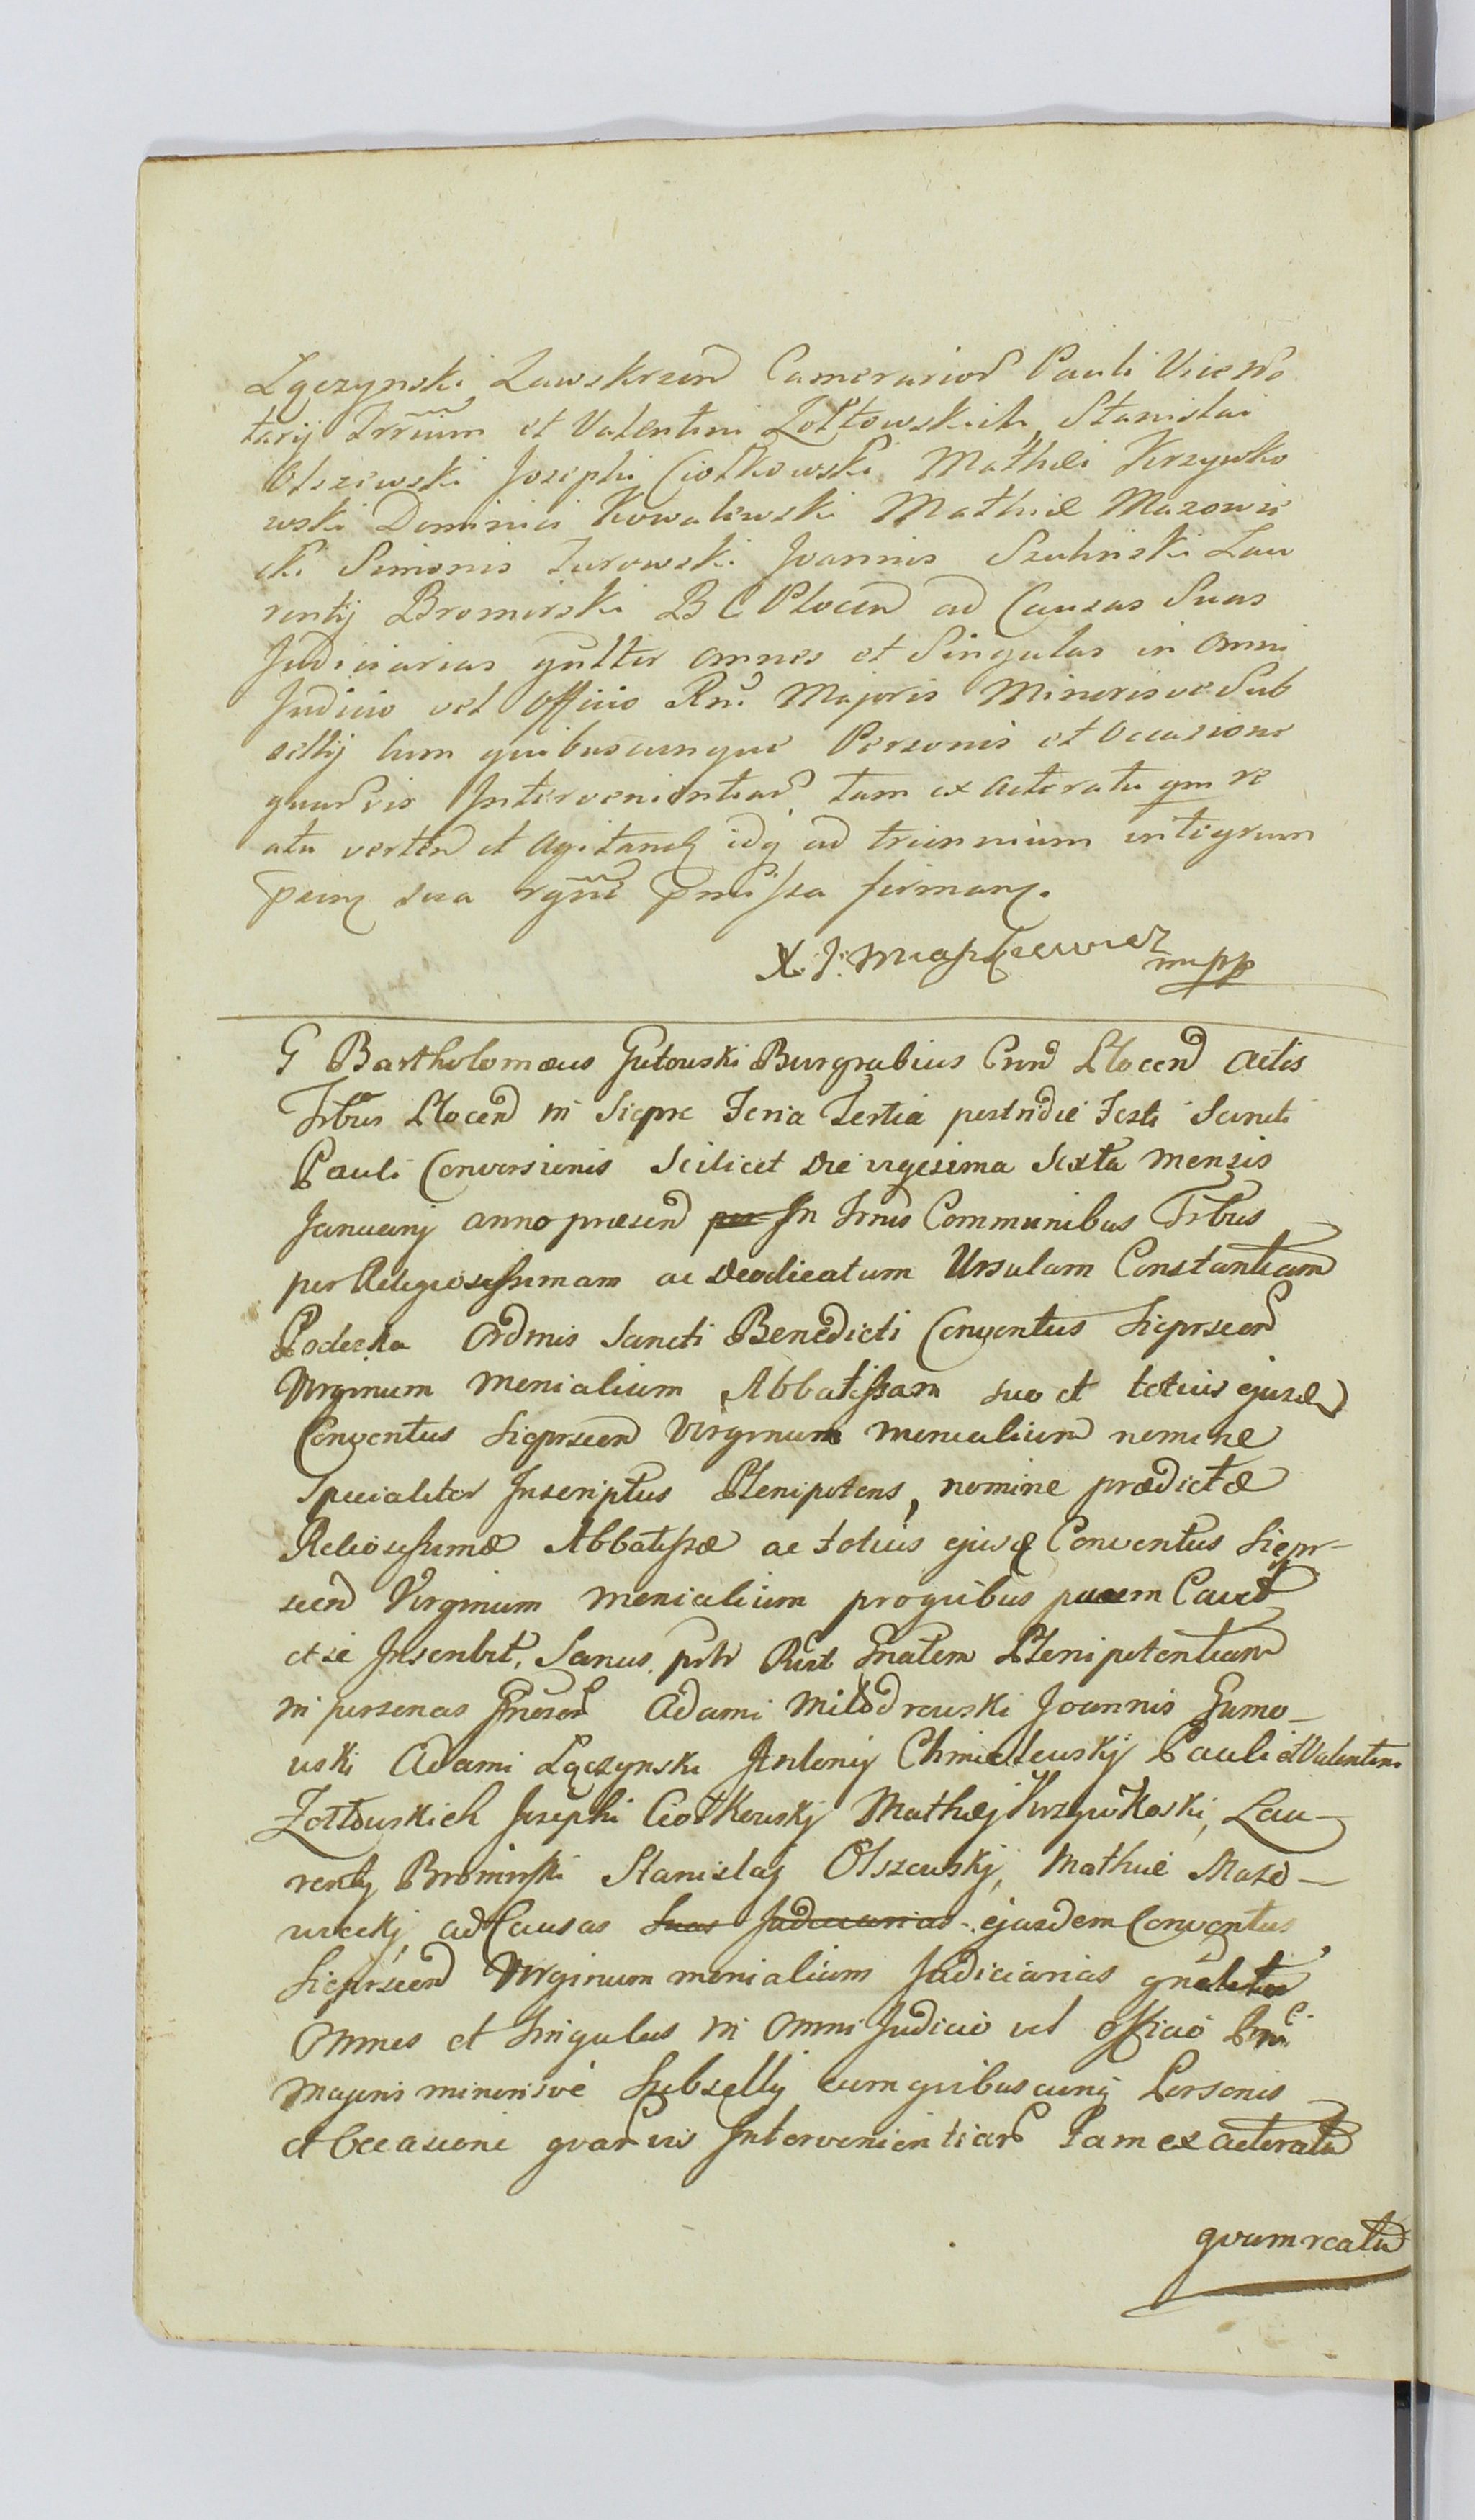 Lączynski Zawskrzen Camerarior Pauli Vice No
tarij Trrium et Valentini Zołtowskich Stanislai
Olszewski Josephi Ciołkowski Mathei Krzywko
wski Dominici Kowalewski Mathiæ Mazowie
cki Simonis Zurowski Joannis Szulinski Lau
rentij Bromirski B C Plocen ad Causas Suas
Judiciarias gnlter omnes et Singulas in omni
Judicio vel Officio Rni Majoris Minorisve Sub
sellij cum quibuscunque Personis et Occasione
quarvis Intervenientiar tam ex actoratu qm re
atu verten et agitand idq ad triennium integrum
sua pmissa firmand.
mpp
G Bartholomæus Gutowski Burgrabius Crnd Plocen Actis
Trbus Plocen in Sieprc Feria Tertia postridie Festi Sancti
Pauli Conversionis Scilicet die vigesima Sexta Mensis
Januarij anno præsen per In Trnis Communibus Trbus
per Religiosissimam ac Deodicatam Ursulam Constantiam
Ordinis Sancti Benedicti Conventus Sieprscen
Virginum Monialium Abbatissam suo et totius ejusd
Conventus Sieprscen Virginum monialium nomine
Specialiter Inscriptus Plenipotens, nomine prædictæ
Reliosissimæ Abbatissæ ac totius ejusd Conventus Siepr-
scen Virginum monialium pro quibus pacem Cavet
et se Inscribit, Sanus Gnalem Plenipotentiam
in personas Gnosor Adami Miłodrowski Joannis Gumo-
wski Adami Lączynski Antonij Chmielewskij Pauli et Valentini
Zołtowskich Josephi Ciołkowskj Mathej Krzywkoski, Lau-
rentij Bromirski Stanislaj Olszewskj, Mathiæ Mazo-
wieckj ad Causas Suas Judiciarias ejusdem Conventus
Sieprscen Virginum monialium Judiciarias gnaliter
Omnes et Singulas in omni Judicio vel officio
majoris minorisve Subsellij cum quibuscunq Personis
et Occasione quarvis Intervenientiar Tam ex actoratu
qvam reatu